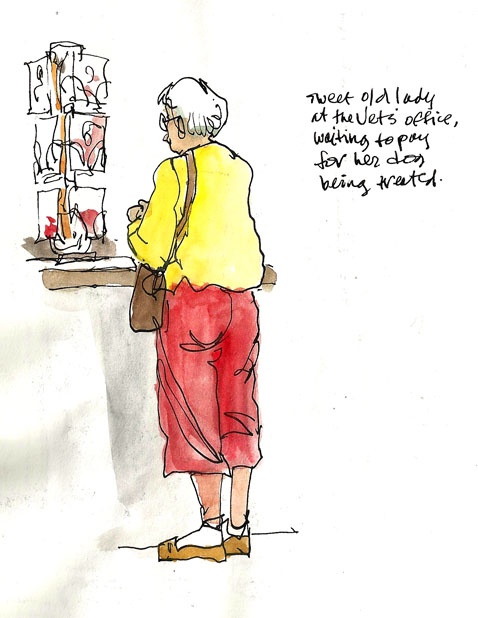 sweet old lady
at the Vets' office,
waiting to pay
for her dog
being treated.